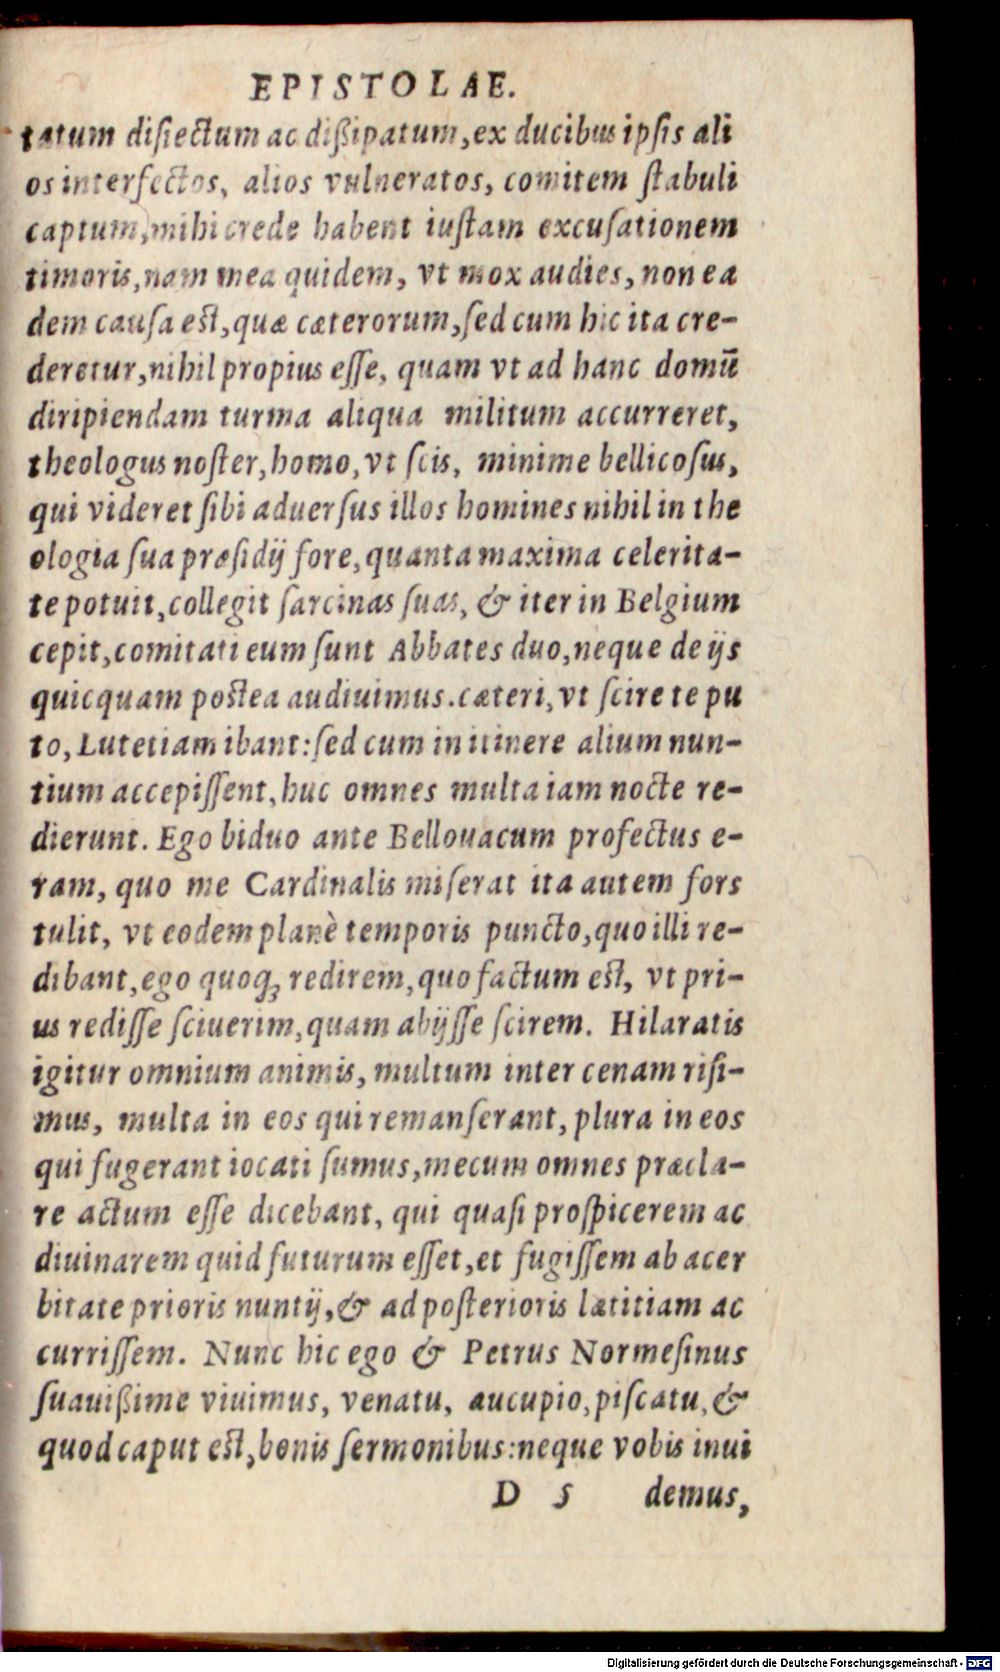 EPISTOLAE.
tatum disiectum ac dißipatum, ex ducibus ipsis ali
os interfectos, alios vulneratos, comitem stabuli
captum, mihi crede habent iustam excusationem
timoris, nam mea quidem, vt mox audies, non ea
dem causa est, quæ cæterorum, sed cum hic ita cre-
deretur, nihil propius esse, quam vt ad hanc domū
diripiendam turma aliqua militum accurreret,
theologus noster, homo, vt scis, minime bellicosus,
qui videret sibi aduersus illos homines nihil in the
ologia sua præsidij fore, quanta maxima celerita-
te potuit, collegit sarcinas suas, & iter in Belgium
cepit, comitati eum sunt Abbates duo, neque de ijs
quicquam postea audiuimus. cæteri, vt scire te pu
to, Lutetiam ibant: sed cum in itinere alium nun-
tium accepissent, huc omnes multa iam nocte re-
dierunt. Ego biduo ante Bellouacum profectus e-
ram, quo me Cardinalis miserat ita autem fors
tulit, vt eodem planè temporis puncto, quo illi re-
dibant, ego quoq; redirem, quo factum est, vt pri-
us redisse sciuerim, quam abijsse scirem. Hilaratis
igitur omnium animis, multum inter cenam risi-
mus, multa in eos qui remanserant, plura in eos
qui fugerant iocati sumus, mecum omnes præcla-
re actum esse dicebant, qui quasi prospicerem ac
diuinarem quid futurum esset, et fugissem ab acer
bitate prioris nuntij, & ad posterioris lætitiam ac
currissem. Nunc hic ego & Petrus Normesinus
suauißime viuimus, venatu, aucupio, piscatu, &
quod caput est, bonis sermonibus: neque vobis inui
D 5 demus,
Digitalisierung gefördert durch die Deutsche Forschungsgemeinschaft - DFG